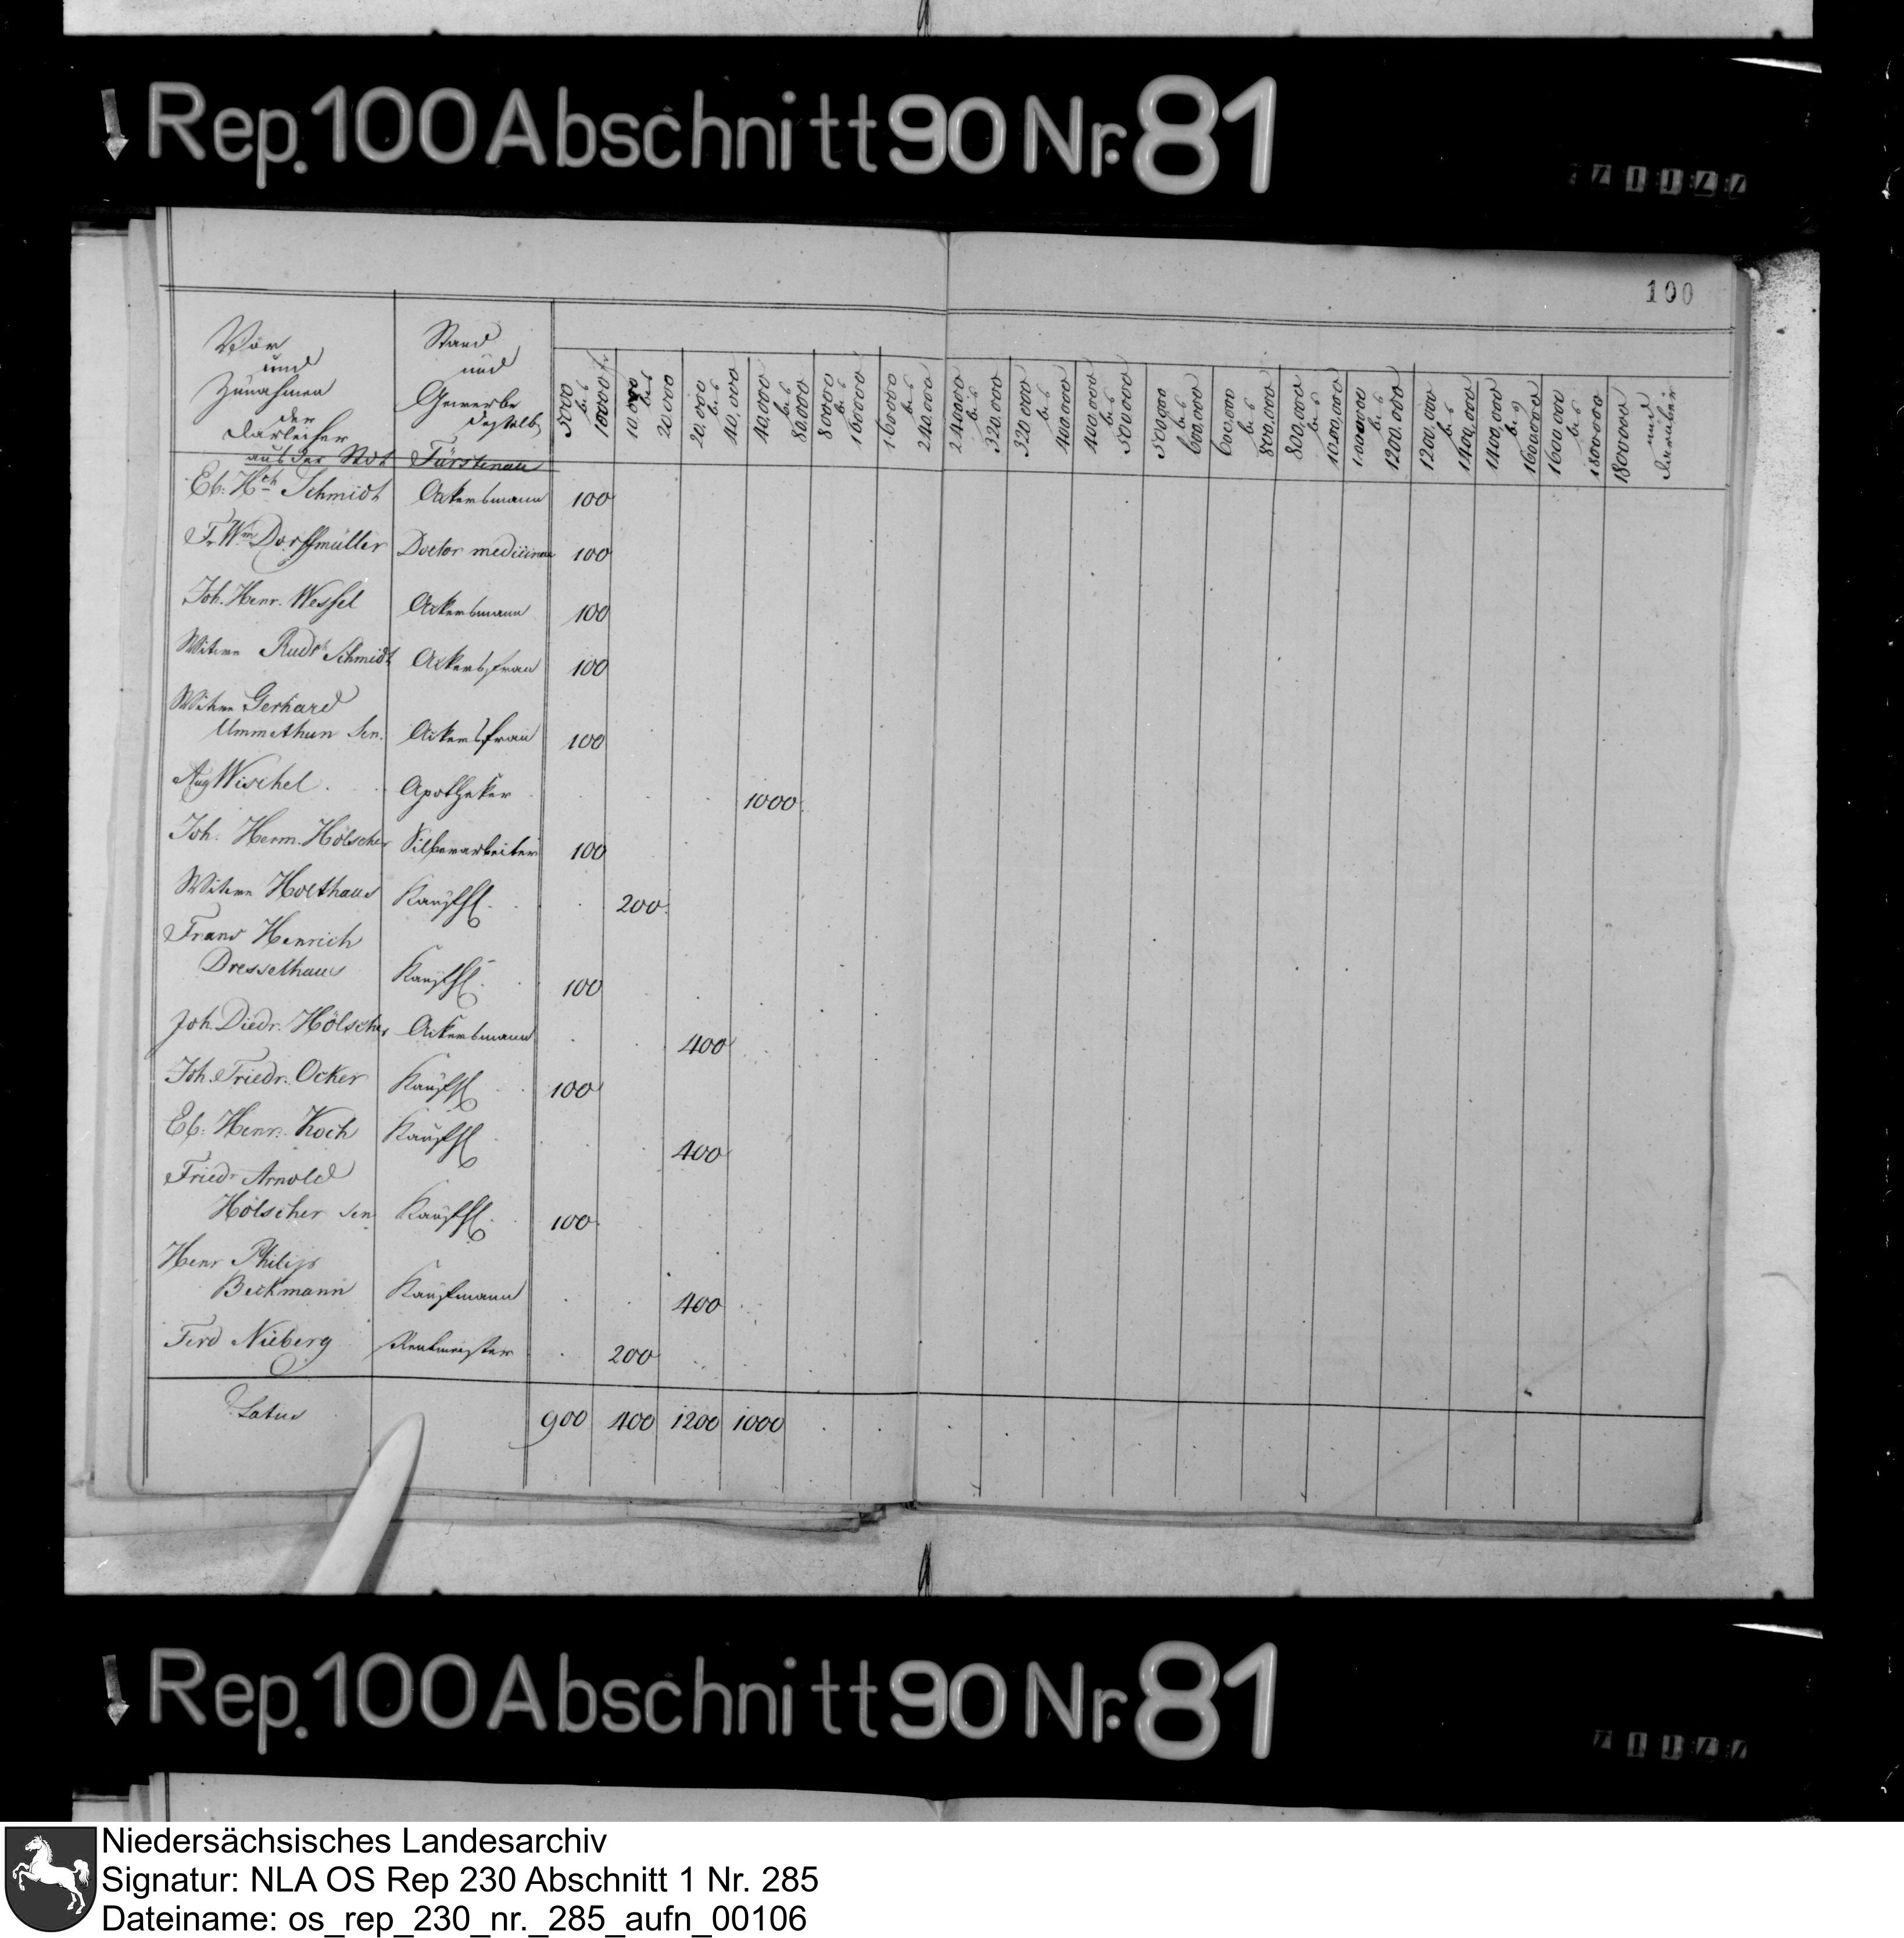 Rep. 100 Abschnitt 90 Nr. 81
100
Vor
und
Zunahmen
der
Darleiher
aus der Stdt Fürstenau
Stand
und
Gewerbe
desselb
5000 bis 10000 fr.
10,000 bis 20,000
20,000 bis 40,000
40,000 bis 80,000
80000 bis 160000
160000 bis 240,000
240000 bis 320,000
320,000 bis 400,000
400,000 bis 500,000
500,000 bis 600,000
600,000 bis 800,000
800,000 bis 1000,000
1000,000 bis 1200,000
1200,000 bis 1400,000
1400,000 bis 1600,000
1600,000 bis 1800,000
1800000 und darüber
Eb: Hch Schmidt Ackersmann 100
Fr Wm Dorffmüller Doctor medicinae 100
Joh. Henr. Wessel Ackersmann 100
Witwe Rud. Schmidt Ackersfrau 100
Witwe Gerhard
Ummethun Sen. Ackersfrau 100
Aug Wischel Apotheker 1000
Joh. Herm. Hölscher Silberarbeiter 100
Witwe Holthaus Kaufhl. 200
Franz Henrich
Dresselhaus Kaufhl. 100
Joh. Diedr. Hölscher Ackersmann 400
Joh. Friedr. Ocker Kaufhl 100
Eb: Henr. Koch Kaufhl 400
Friedr Arnold
Hölscher Sen Kaufhl. 100
Henr Philip
Beckmann Kaufmann 400
Ferd Nieberg Rentmeister 200
Latus 900 400 1200 1000
Rep. 100 Abschnitt 90 Nr. 81
Niedersächsisches Landesarchiv
Signatur: NLA OS Rep 230 Abschnitt 1 Nr. 285
Dateiname: os_rep_230_nr._285_aufn_00106